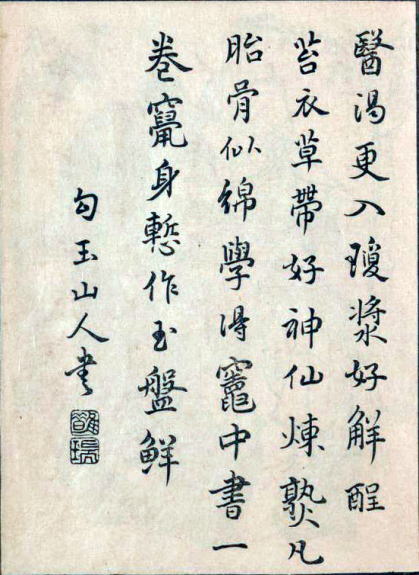 醫渴更入瓊漿好解酲
苔衣草帶好神仙煉熟凡
胎骨似綿學得竈中書一
卷竄身慙作玉盤鮮
勾玉山人書